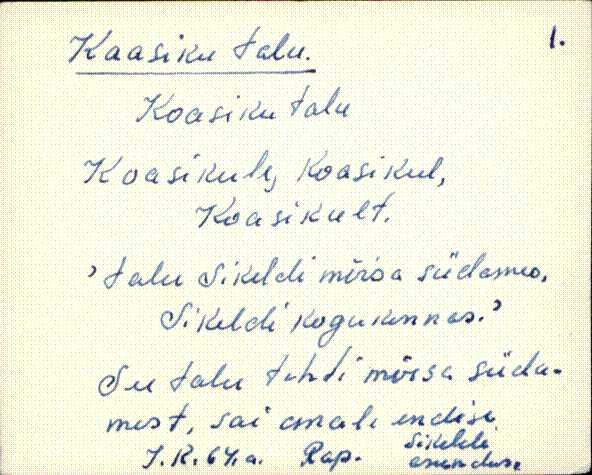 1.
Kaasiku talu.
Koasiku talu
Koasikule, Koasikul,
Koasikult.
'talu Sikeldi mõisa südames,
Sikeldi kogukonnas.'
See talu tehti mõisa süda-
mest, sai omale endise
J.R. 64.a. Rap. Sikeldi
asunduse